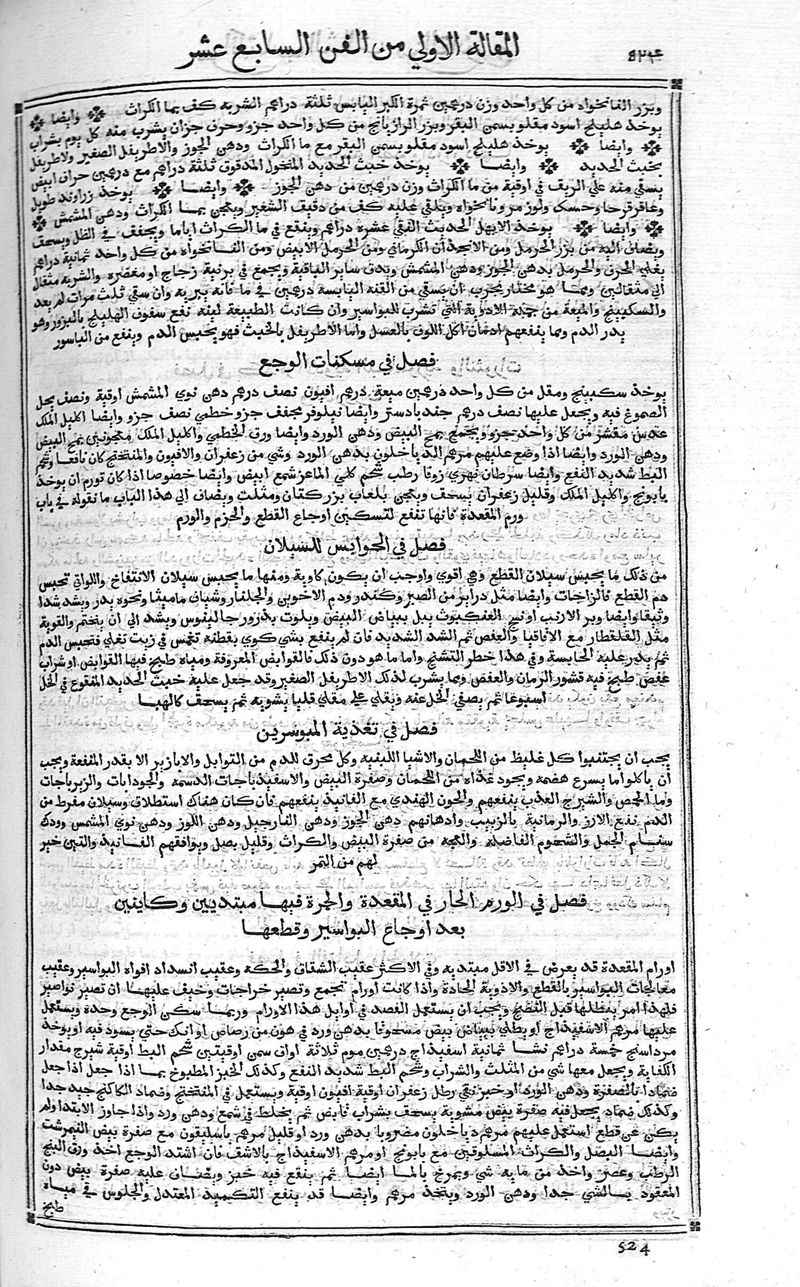 المقالة الاولي من الفن السابع عشر
وبزر النانخواه من كل واحد وزن درهمين ثمرة الكبر اليابس ثلثة دراهم الشربة كف بما الكراث وايضا
يوخذ هليلج اسود مقلو بسمن البقر وبزر الرازيانج من كل واحد جزو وحرف جزان يشرب منه كل يوم بشراب
وايضا يوخذ هليلج اسود مقلو بسمن البقر مع ما الكراث ودهن الجوز والاطريفل الصغير ولاطريفل
بخبث الحديد وايضا يوخذ خبث الحديد المنخول المدقوق ثلثة دراهم مع درهمين حرف ابيض
يسقي منه علي الريق في اوقية من ما الكراث وزن درهمين من دهن الجوز وايضا يوخذ زراوند طويل
وعاقرقرحا وحسك ولوز مر ونانخواه ويلقي عليه كف من دقيق الشعير ويعجن بما الكراث ودهن المشمش
وايضا يوخذ الابهل الحديث النقي عشرة دراهم وينقع في ما الكراث اياما ويجفف في الظل ويسحف
ويضاف اليه من بزر الحرمل ومن الانجدان الكرماني ومن الحرمل الابيض ومن النانخواه من كل واحد ثمانية دراهم
يغلي الحرف والحرمل بدهن الجوز ودهن المشمش ويدق ساير الباقية ويجمع في برنية زجاج او مغضرة والشربة مثقال
الي مثقالين ومما هو مختار مجرب ان يسقي من القنه اليابسة درهمين في ما فانه يبريه وان سقي ثلث مرات لم يعد
والسكبينج والميعة من جملة الادوية التي تشرب للبواسير وان كانت الطبيعة لينة نفع سفوف الهليلج بالبزور وهو
يدر الدم ومما ينفعهم ادمان اكل اللوز بالعسل واما الاطريفل بالخبث فهو يحبس الدم وينفع من الباسور
فصل في مسكنات الوجع
يوخذ سكبينج ومقل من كل واحد درهمين ميعة درهم افيون نصف درهم دهن نوي المشمش اوقية ونصف يحل
الصموغ فيه ويجعل عليها نصف درهم جندبادستر وايضا نيلوفر مجفف جزو خطمي نصف جزو وايضا اكليل الملك
عدس مقشر من كل واحد جزو ويجمع بمح البيض ودهن الورد وايضا ورق الخطمي واكليل الملك معجونين بمح البيض
ودهن الورد وايضا اذا وضع عليهم مرهم الدياخلون بدهن الورد وشي من زعفران والافيون والمنفختج كان نافعا وشحم
البط شديد النفع وايضا سرطان نهري زوفا رطب شحم كلي الماعز شمع ابيض وايضا خصوصا اذا كان تورم ان يوخذ
بابونج واكليل الملك وقليل زعفران يسحف ويعجن بلعاب بزر كتان ومثلث ويضاف الي هذا الباب ما نقوله في باب
ورم المقعدة فانها تنفع لتسكين اوجاع القطع والحزم والورم
فصل في الحوابس للسيلان
من ذلك ما يحبس سيلان القطع وهي اقوي واوجب ان يكون كاوية ومنها ما يحبس سيلان الانتفاخ واللواتي تحبس
هم القطع فالزاجات وايضا مثل دراير من الصبر وكندر ودم الاخوين والجلنار وشياف ماميثا ونحوه يدر ويشد شدا
وثيقا وايضا وبر الارنب او نسج العنكبوت يبل ببياض البيض ويلوت بدزور جالينوس ويشد الي ان يختم والقوية
مثل القلقطار مع الاقاقيا والعفص ثم الشد الشديد فان لم ينفع بشي كوي بقطنة تغمس في زيت تغلي فتحبس الدم
ثم يدر عليه الحابسة وفي هذا خطر التشنج واما ما هو دون ذلك فالقوابض المعروفة ومياه طبخ فيها القوابض او شراب
عفص طبخ فيه قشور الرمان والعفص ومما يشرب لذلك الاطريفل الصغير وقد جعل عليه خبث الحديد المنقوع في الخل
اسبوعا ثم يصفي الخل عنه ويقلي علي مقلي قليا يشويه ثم يسحف كالهبا
فصل في تغذية المبوسرين
يجب ان يجتنبوا كل غليظ من اللحمان والاشيا اللبنية وكل محرق للدم من التوابل والابازير الا بقدر المنفعة ويجب
ان ياكلوا ما يسرع هضمه ويجود غذاه من اللحمان وصفرة البيض والاسفيذباجات الدسمة والجوذابات والزيرباجات
وما الحمص والشيرج العذب ينفعهم والجوز الهندي مع الفانيذ ينفعهم فان كان هناك استطلاق وسيلان مفرط من
الدم نفع الارز والرمانية بالزبيب وادهانهم دهن الجوز ودهن النارجيل ودهن اللوز ودهن نوي المشمس وودك
سنام الجمل والشحوم الفاضلة والعجه من صفرة البيض والكراث وقليل بصل ويوافقهم الفانيذ والتين خير
لهم من التمر
فصل في الورم الحار في المقعدة والحمرة فيها مبتديين وكاينين
بعد اوجاع البواسير وقطعها
اورام المقعدة قد يعرض في الاقل مبتديه وفي الاكثر عقيب الشقاق والحكه وعقيب انسداد افواه البواسير وعقيب
معالجات البواسير بالقطع والادوية الحادة واذا كانت اورام تجمع وتصير خراجات وخيف عليها ان تصير نواصير
فلهذا امر ببطها قبل النضج ويجب ان يستعمل الفصد في اوايل هذا الاورام وربما سكن الوجع وحدة ويستعمل
عليها مرهم الاسفيداج او يطلي ببياض بيض مسحوقا بدهن ورد في هون من رصاص او انك حتي يسود فيه او يوخذ
مرداسنج خمسة دراهم نشا ثمانية اسفيداج درهمين موم ثلاثة اواق سمن اوقيتين شحم البط اوقية شيرج مقدار
الكفاية ويجعل معها شي من المثلث والشراب وشحم البط شديد النفع وكذلك الخبز المطبوخ بما اذا جعل اذا جعل
ضمادا بالصفرة ودهن الورد او خبز نقي رطل زعفران اوقية افيون اوقية ويستعمل في المنفختج وضماد الكاكنج جيد جدا
وكذلك ضماد يجعل فيه صفرة بيض مشوية يسحف بشراب قابض ثم يخلط في شمع ودهن ورد واذا جاوز الابتدا ولم
يكن عن قطع استعمل عليهم مرهم دياخلون مضروبا بدهن ورد او قليل مرهم باسليقون مع صفرة بيض النيمرشت
وايضا البصل والكراث المسلوقين مع بابونج او مرهم الاسفيداج بالاشف فان اشتد الوجع اخذ ورق البنج
الرطب وعصر واخذ من مايه شي ويمرخ بالما ايضا ثم ينقع فيه خبز ويضاف عليه صفرة بيض دون
المعقود بالشي جدا ودهن الورد ويتخذ مرهم وايضا قد ينفع التكميد المعتدل والجلوس في مياه
طبخ
524